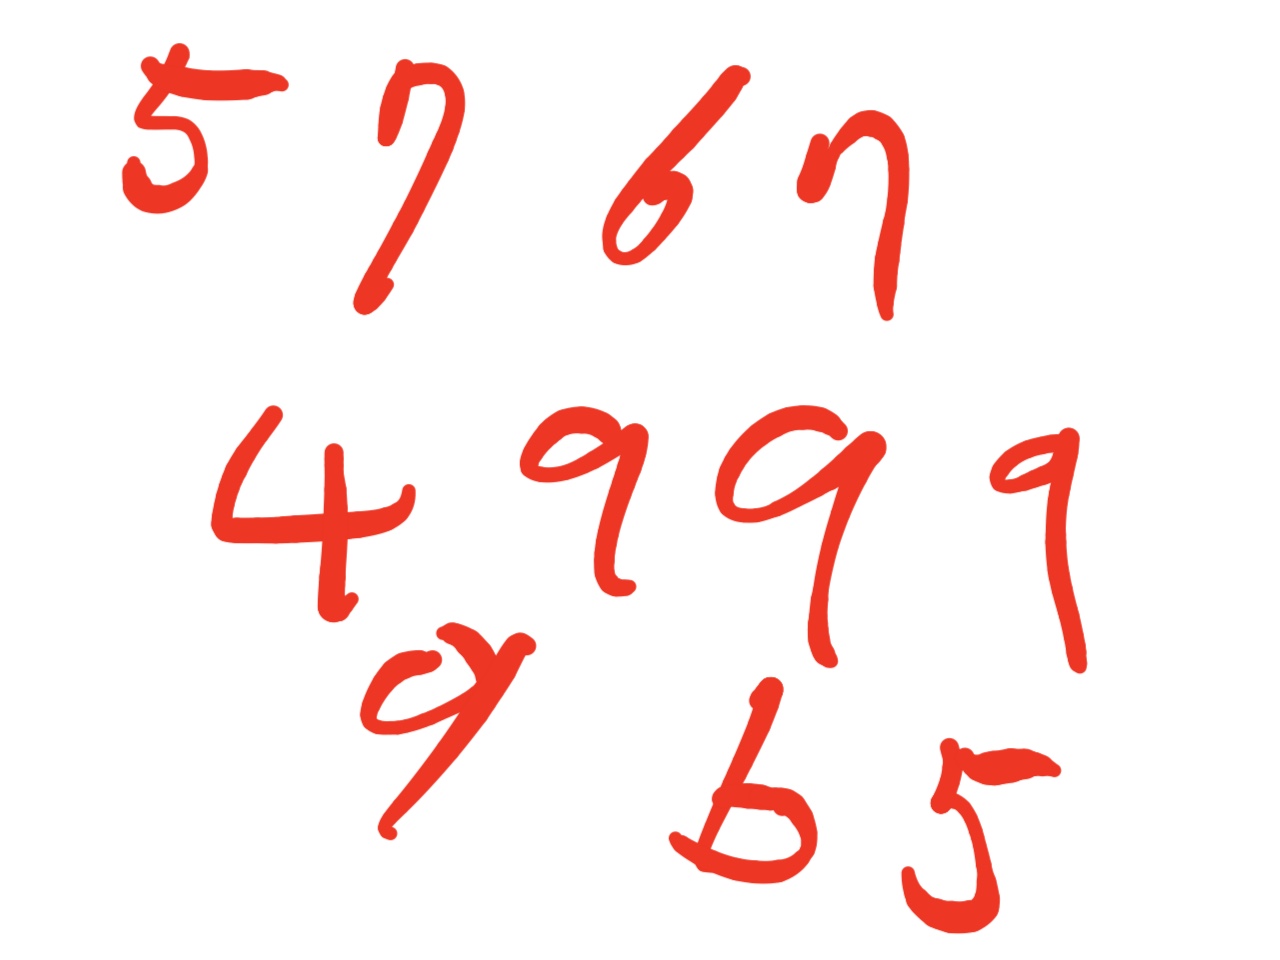 5767
4999
965